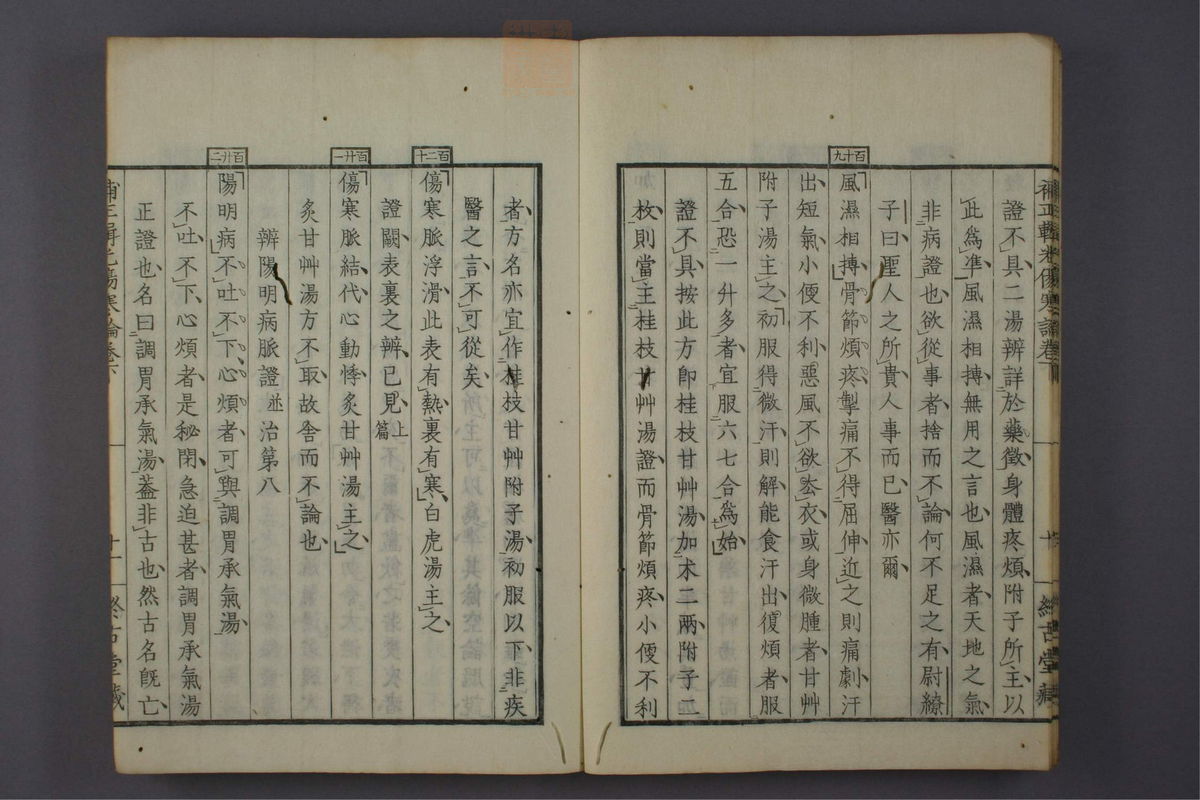 補正輯光傷寒論卷下
十
終古堂藏
證不具二湯辨詳於藥徵身體疼煩附子所主以
此爲準風濕相搏無用之言也風濕者天地之氣
非病證也欲從事者捨而不論何不足之有尉繚
子曰聖人之所貴人事而已醫亦爾
百十九
風濕相搏骨節煩疼掣痛不得屈伸近之則痛劇汗
出短氣小便不利惡風不欲厺衣或身微腫者甘艸
附子湯主之初服得微汗則解能食汗出復煩者服
五合恐一升多者宜服六七合爲始
證不具按此方卽桂枝甘艸湯加朮二兩附子二
枚則當主桂枝甘艸湯證而骨節煩疼小便不利
者方名亦宜作桂枝甘艸附子湯初服以下非疾
醫之言不可從矣
百二十
傷寒脈浮滑此表有熱裏有寒白虎湯主之
證闕表裏之辨已見上篇
百廿一
傷寒脈結代心動悸炙甘艸湯主之
炙甘艸湯方不取故舍而不論也
辨陽明病脈證並治第八
百廿二
陽明病不吐不下心煩者可與調胃承氣湯
不吐不下心煩者是秘閉急迫甚者調胃承氣湯
正證也名曰調胃承氣湯蓋非古也然古名旣亡
補正輯光傷寒論卷下
十一
終古堂藏